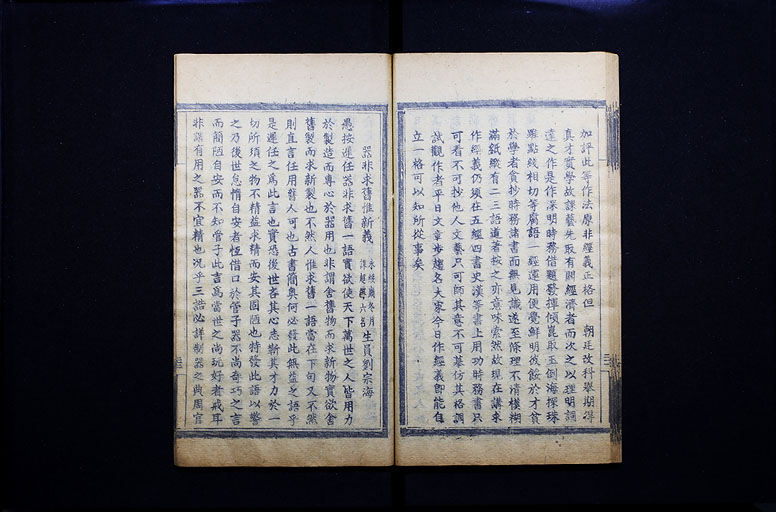 加評此等作法原非經義正格但 朝廷改科舉期得
真才實學故課藝先取有關經濟者而次之以理明詞
達之作是作深明時務借題發揮傾崑取玉倒海探珠
雖點綴相切等腐語一經運用便覺鮮明彼餒於才貧
於學者貪抄時務諸書而無見識遂至條理不清模糊
滿紙縱有二三語道著按之亦意味索然故現在講求
作經義仍須在五經四書史漢等書上用功時務書只
可看不可抄他人文藝只可師其意不可摹仿其格調
試觀作者平日文章步趨名大家今日作經義即能自
立一格可以知所從事矣
器非求舊惟新義 生員劉宗海
愚按遲任器非求舊一語實欲使天下萬世之人皆用力
於製造而專心於器用也非謂舍舊物而求新物實欲舍
舊製而求新製也不然人惟求舊一語當在下句又不然
則直言任用舊人可也古書簡奧何必發此無益之語乎
是遲任之為此言也實恐後世吝其心志靳其才力於一
切所須之物不精益求精而安其固陋也特發此語以警
之乃後世怠惰自安者恆借口於管子器不尚奇巧之言
而簡陋自安而不知管子此言為當世之尚玩好者戒耳
非謂有用之器不宜精也況乎三誥必詳制器之典周官